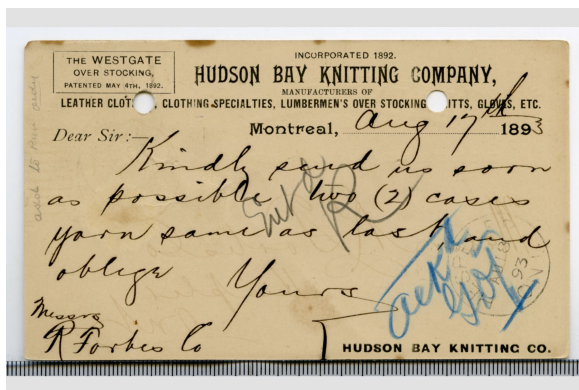 INCORPORATED 1892.
THE WESTGATE
OVER STOCKING,
PATENTED MAY 4TH, 1892.
HUDSON BAY KNITTING COMPANY,
MANUFACTURERS OF
LEATHER CLOT CLOTHING SPECIALTIES, LUMBERMEN'S OVER STOCKING ITTS, GLOVES, ETC.
Dear Sir:—
Montreal, Aug 17th 1893
Kindly send us soon
as possible two (2) cases
yarn same as last, and
oblige Yours
Messrs
R Forbes Co
HUDSON BAY KNITTING CO.
Ent'd
Ack'd
93